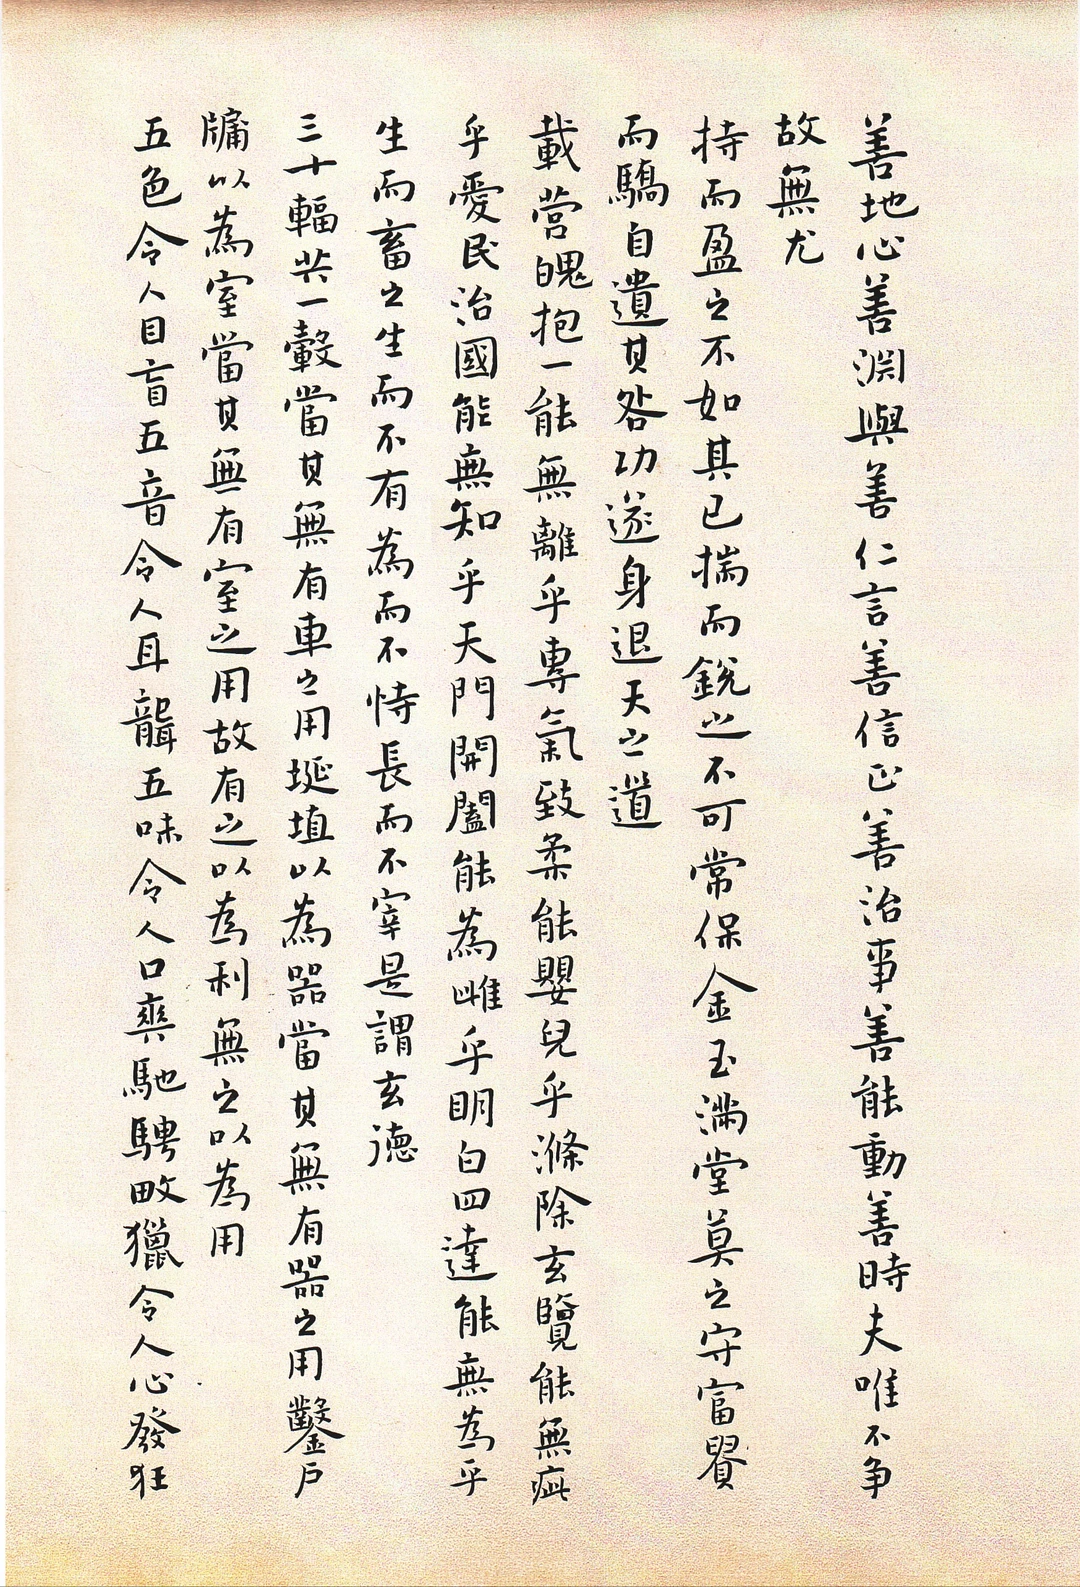 善地心善淵與善仁言善信正善治事善能動善時夫唯不爭
故無尤
持而盈之不如其已揣而銳之不可常保金玉滿堂莫之守富貴
而驕自遺其咎功遂身退天之道
載營魄抱一能無離乎專氣致柔能嬰兒乎滌除玄覽能無疵
乎愛民治國能無知乎天門開闔能為雌乎明白四達能無為乎
生而畜之生而不有為而不恃長而不宰是謂玄德
三十輻共一轂當其無有車之用埏埴以為器當其無有器之用鑿戶
牖以為室當其無有室之用故有之以為利無之以為用
五色令人目盲五音令人耳聾五味令人口爽馳騁畋獵令人心發狂